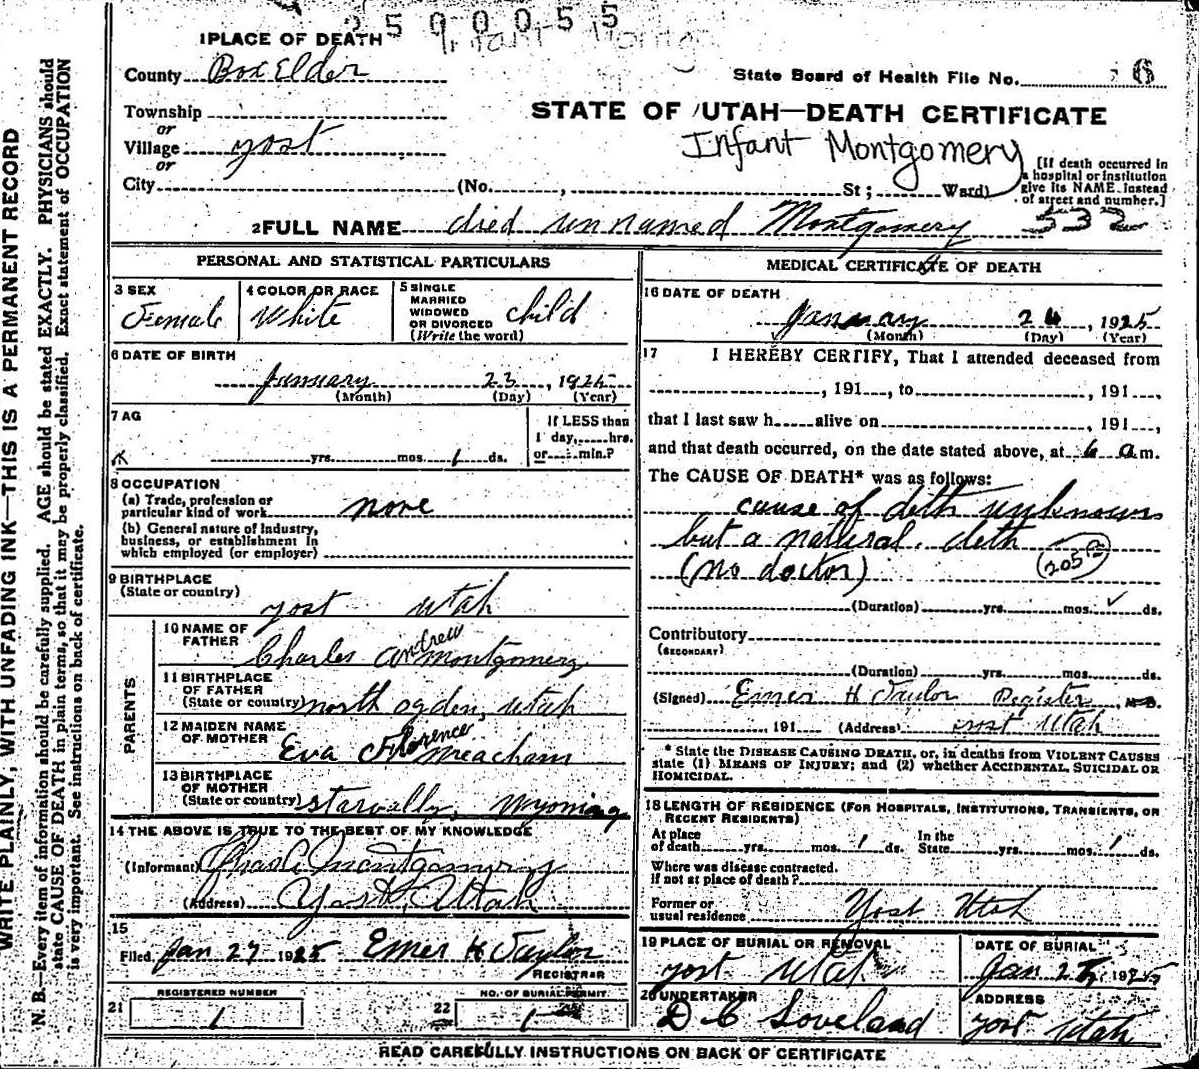 2590055
Infant Montg
1 PLACE OF DEATH
County Box Elder
State Board of Health File No. 6
Township
or
Village yost
or
City (No. , St; Ward)
STATE OF UTAH—DEATH CERTIFICATE
Infant Montgomery
[If death occurred in
a hospital or institution
give its NAME instead
of street and number.]
2 FULL NAME died unnamed Montgomery 532
PERSONAL AND STATISTICAL PARTICULARS
3 SEX
Female
4 COLOR OR RACE
White
5 SINGLE
MARRIED
WIDOWED
OR DIVORCED
(Write the word)
child
6 DATE OF BIRTH
January 23, 1925
(Month) (Day) (Year)
7 AG
yrs. mos. 1 ds.
If LESS than
1 day, hrs.
or min.?
8 OCCUPATION
(a) Trade, profession or
particular kind of work none
(b) General nature of Industry,
business, or establishment in
which employed (or employer)
9 BIRTHPLACE
(State or country)
yost utah
PARENTS
10 NAME OF
FATHER
Charles Andrew montgomery
11 BIRTHPLACE
OF FATHER
(State or country) north ogden, utah
12 MAIDEN NAME
OF MOTHER
Eva Florence meacham
13 BIRTHPLACE
OF MOTHER
(State or country) starvally, Wyoming
14 THE ABOVE IS TRUE TO THE BEST OF MY KNOWLEDGE
(Informant) Charles Montgomery
(Address) Yost, Utah
15
Filed Jan 27 1925 Emer H Taylor
REGISTRAR
21 REGISTERED NUMBER
1
22 NO. OF BURIAL PERMIT
1
MEDICAL CERTIFICATE OF DEATH
16 DATE OF DEATH
January 26, 1925
(Month) (Day) (Year)
17 I HEREBY CERTIFY, That I attended deceased from
, 191 , to , 191 ,
that I last saw h alive on , 191 ,
and that death occurred, on the date stated above, at 6 a m.
The CAUSE OF DEATH* was as follows:
cause of deth unknown
but a natural. deth
(no doctor) 205
(Duration) yrs. mos. ds.
Contributory
(SECONDARY)
(Duration) yrs. mos. ds.
(Signed) Emer H Taylor Register, M.D.
191 (Address) yost Utah
* State the DISEASE CAUSING DEATH, or, in deaths from VIOLENT CAUSES
state (1) MEANS OF INJURY; and (2) whether ACCIDENTAL, SUICIDAL OR
HOMICIDAL.
18 LENGTH OF RESIDENCE (FOR HOSPITALS, INSTITUTIONS, TRANSIENTS, OR
RECENT RESIDENTS)
At place
of death yrs. mos. 1 ds.
In the
State yrs. mos. 1 ds.
Where was disease contracted.
If not at place of death?
Former or
usual residence Yost Utah
19 PLACE OF BURIAL OR REMOVAL
yost utah
DATE OF BURIAL
Jan 27, 1925
20 UNDERTAKER
D C Loveland
ADDRESS
yost Utah
READ CAREFULLY INSTRUCTIONS ON BACK OF CERTIFICATE
WRITE PLAINLY, WITH UNFADING INK—THIS IS A PERMANENT RECORD
N. B.—Every item of information should be carefully supplied. AGE should be stated EXACTLY. PHYSICIANS should
state CAUSE OF DEATH in plain terms, so that it may be properly classified. Exact statement of OCCUPATION
is very important. See instructions on back of certificate.